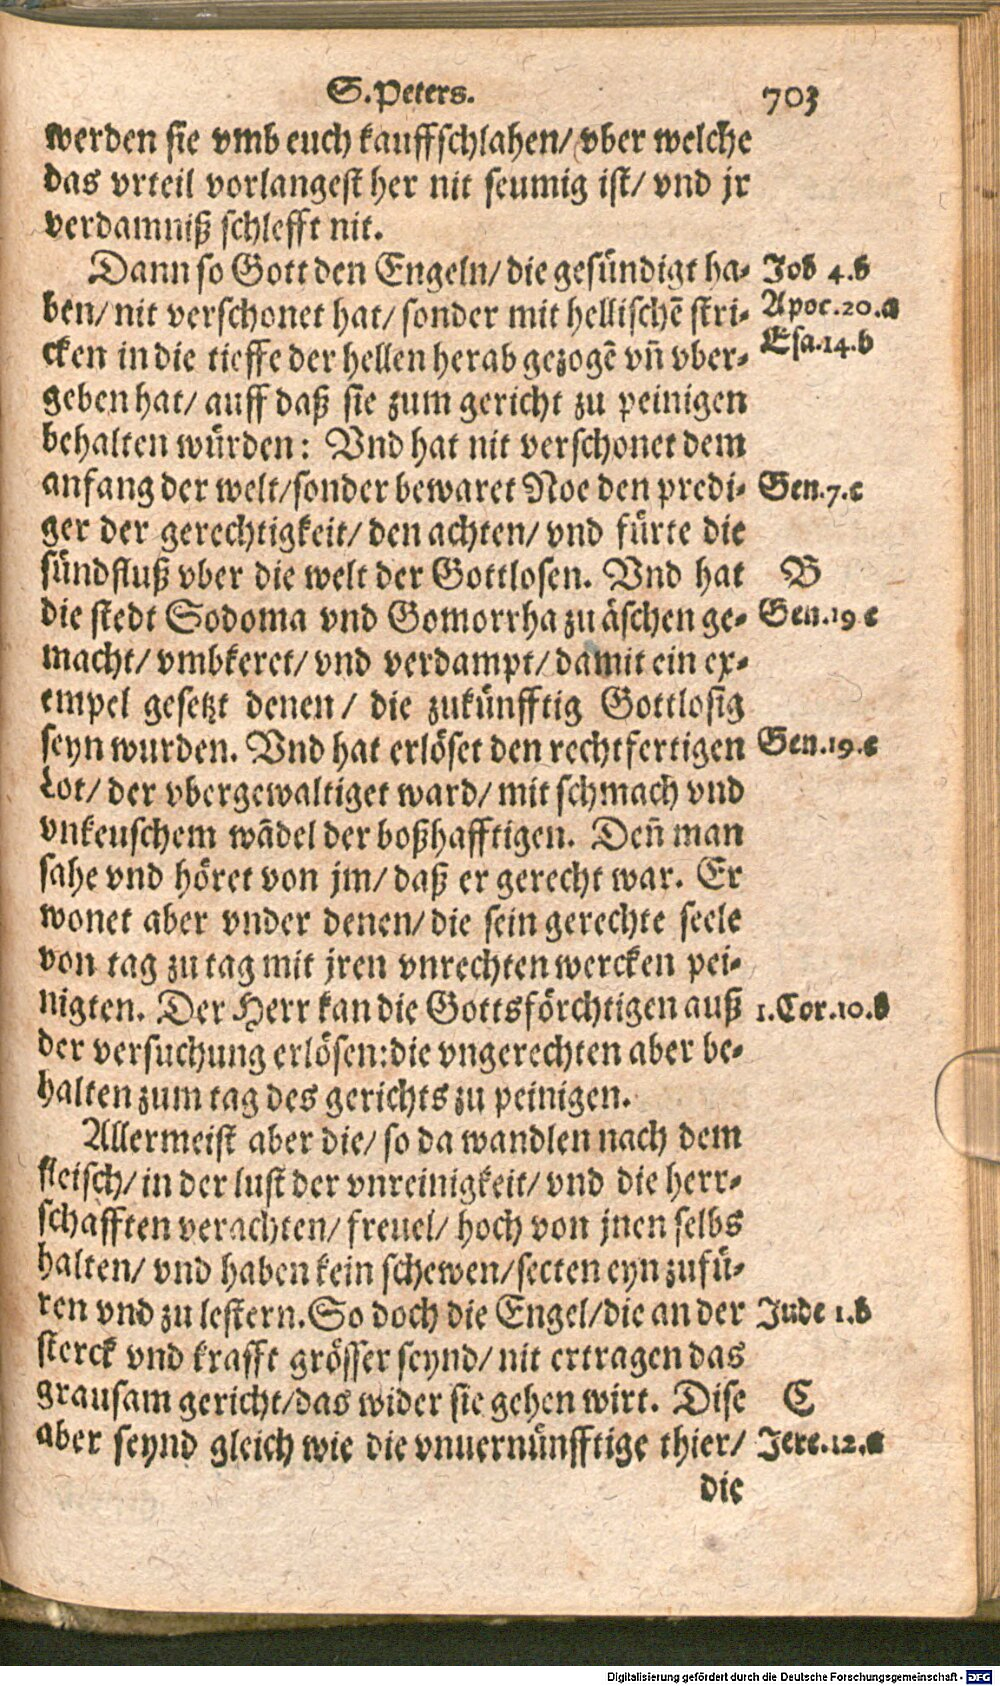 S. Peters. 703
werden sie vmb euch kauffschlahen/ vber welche
das vrteil vorlangest her nit seumig ist/ vnd jr
verdamniß schlefft nit.
Dann so Gott den Engeln/ die gesündigt ha- Job 4.b
ben/ nit verschonet hat/ sonder mit hellischē stri- Apoc.20.a
cken in die tieffe der hellen herab gezogē vñ vber- Esa.14.b
geben hat/ auff daß sie zum gericht zu peinigen
behalten würden: Vnd hat nit verschonet dem
anfang der welt/ sonder bewaret Noe den predi- Gen.7.c
ger der gerechtigkeit/ den achten/ vnd fürte die
sündfluß vber die welt der Gottlosen. Vnd hat B
die stedt Sodoma vnd Gomorrha zu äschen ge- Gen.19 c
macht/ vmbkeret/ vnd verdampt/ damit ein ex-
empel gesetzt denen/ die zukünfftig Gottlosig
seyn wurden. Vnd hat erlöset den rechtfertigen Gen.19.c
Lot/ der vbergewaltiget ward/ mit schmach vnd
vnkeuschem wādel der boßhafftigen. Deñ man
sahe vnd höret von jm/ daß er gerecht war. Er
wonet aber vnder denen/ die sein gerechte seele
von tag zu tag mit jren vnrechten wercken pei-
nigten. Der Herr kan die Gottsförchtigen auß 1.Cor.10.b
der versuchung erlösen: die vngerechten aber be-
halten zum tag des gerichts zu peinigen.
Allermeist aber die/ so da wandlen nach dem
fleisch/ in der lust der vnreinigkeit/ vnd die herr-
schafften verachten/ freuel/ hoch von jnen selbs
halten/ vnd haben kein schewen/ secten eyn zufü-
ren vnd zu lestern. So doch die Engel/ die an der Jude 1.b
sterck vnd krafft grösser seynd/ nit ertragen das
grausam gericht/ das wider sie gehen wirt. Dise C
aber seynd gleich wie die vnuernünfftige thier/ Jere.12.a
die
Digitalisierung gefördert durch die Deutsche Forschungsgemeinschaft - DFG